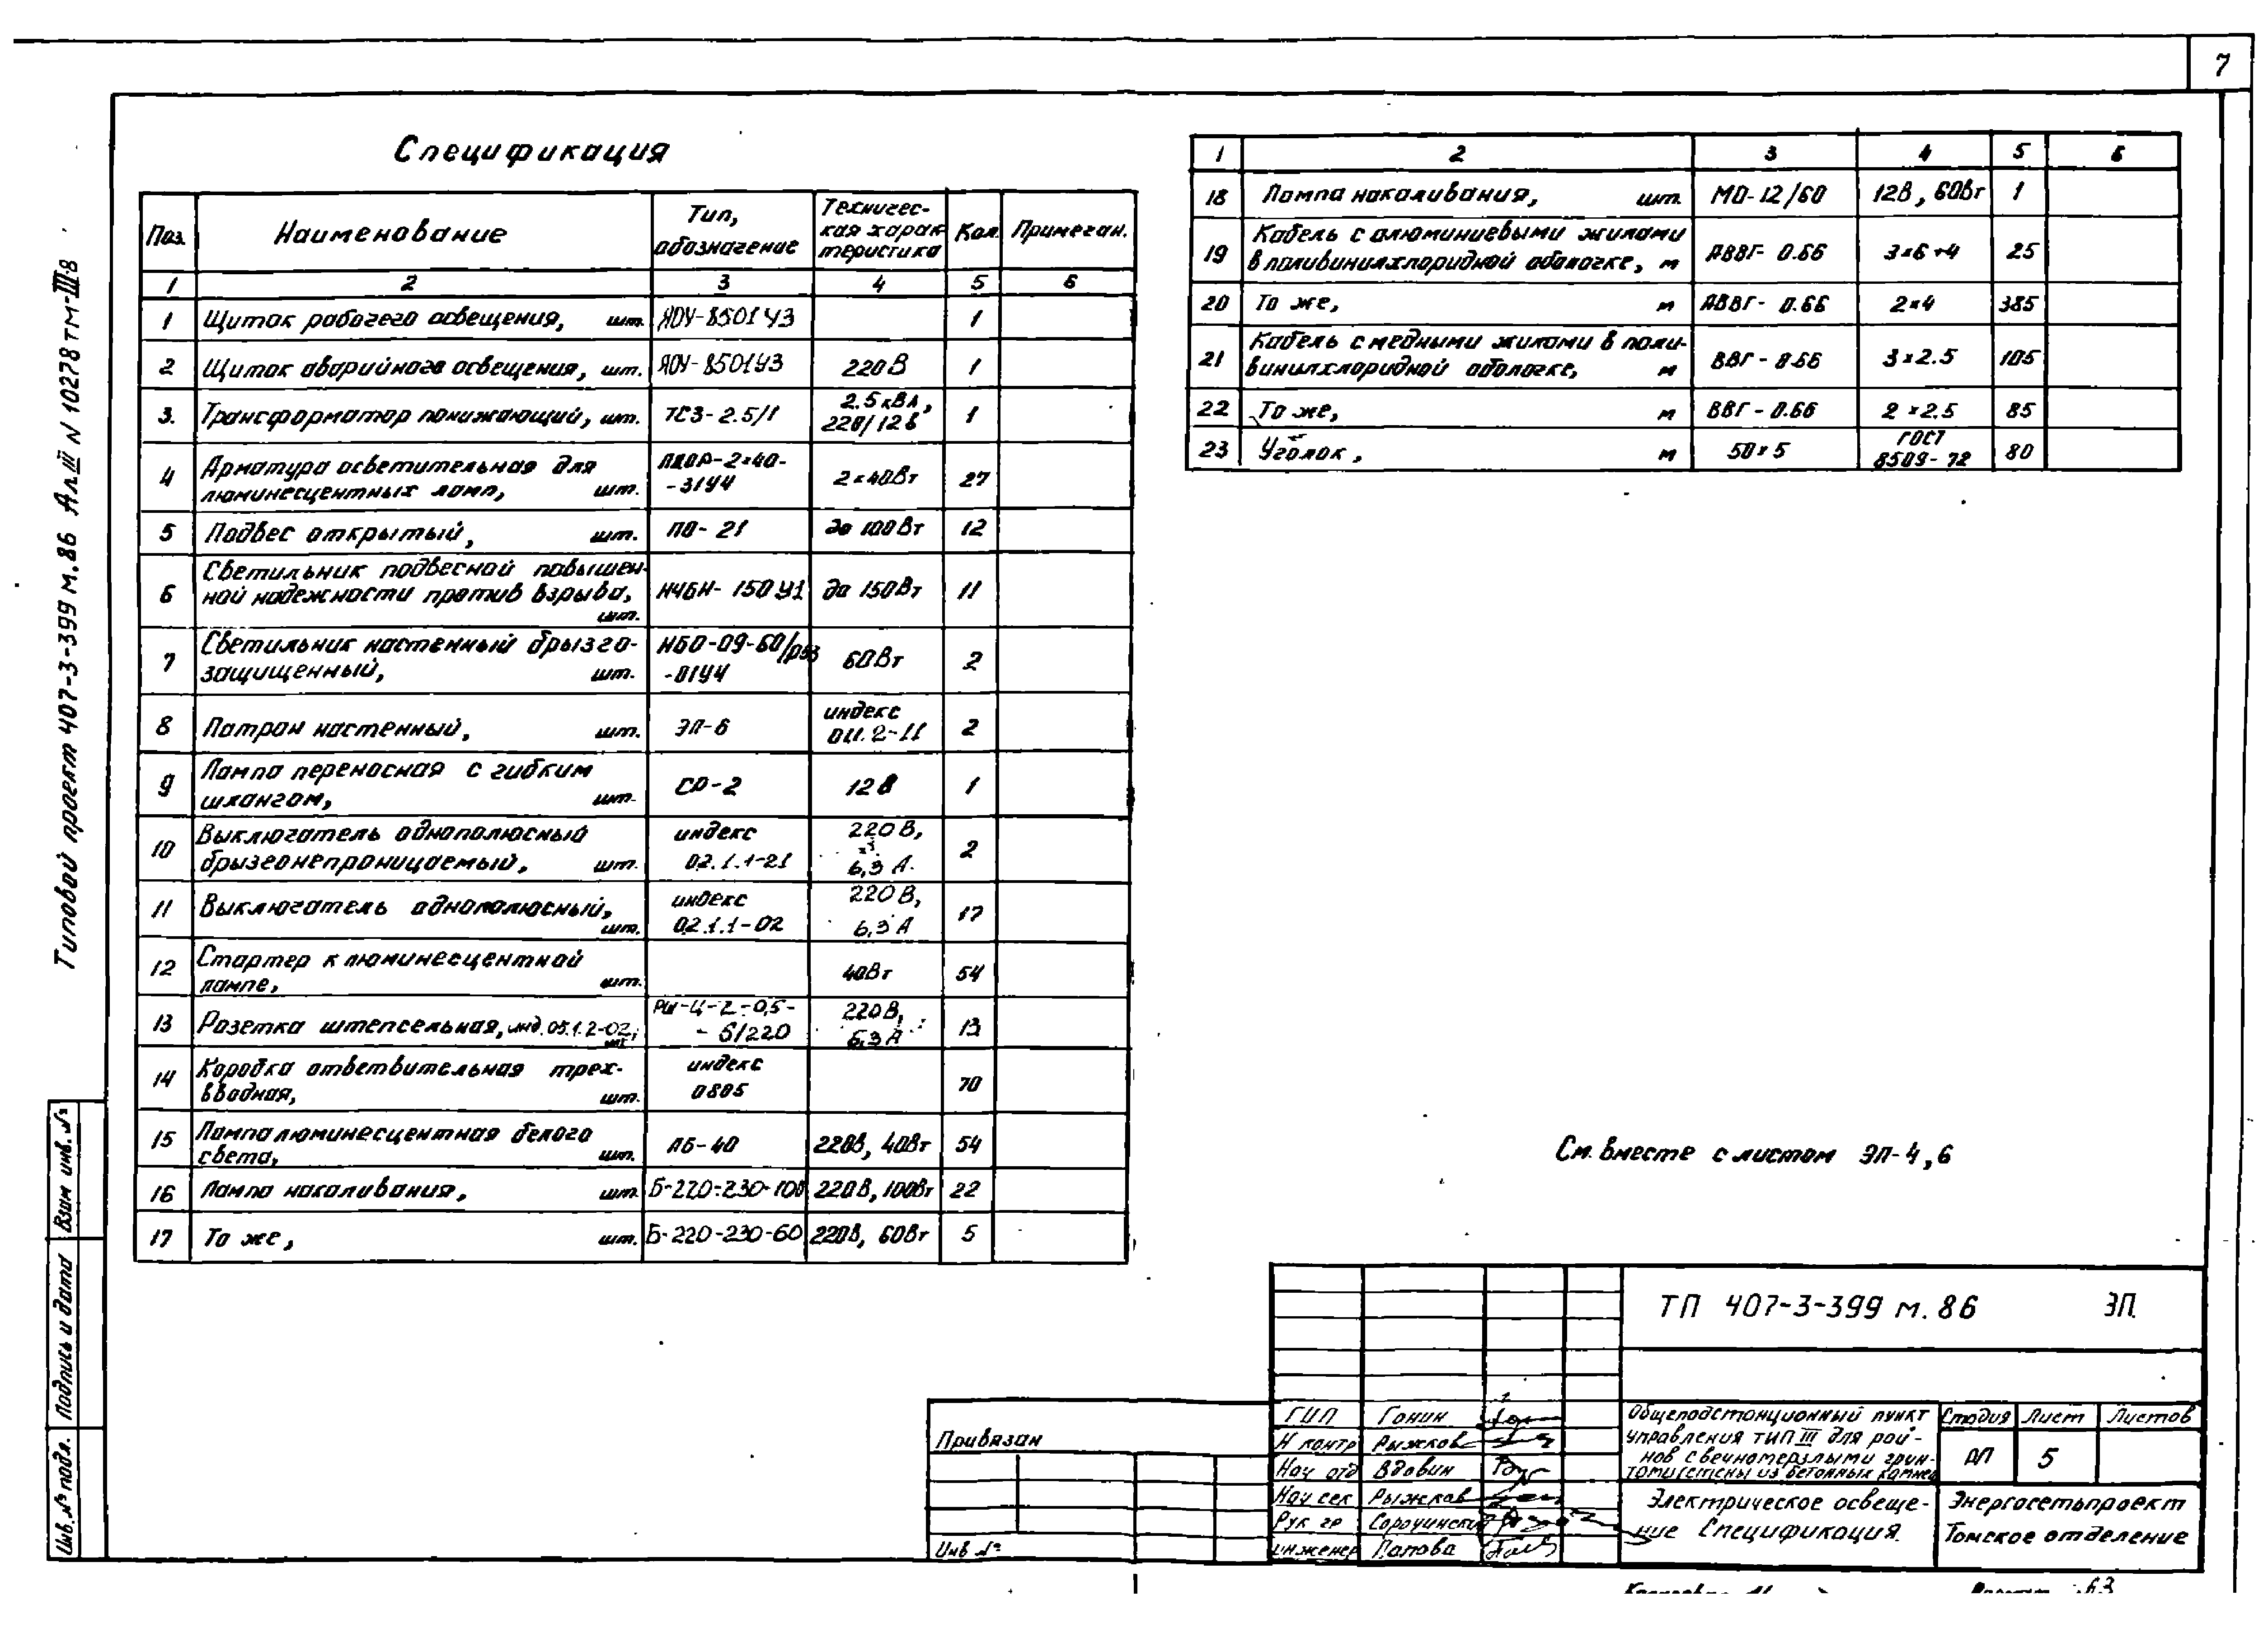 7
Типовой проект 407-3-399 м.86 Ал.III N 10278тм-III-8
Спецификация
Поз. Наименование Тип, обозначение Техничес-кая харак-теристика Кол. Примечан.
1 2 3 4 5 6
1 Щиток рабочего освещения, шт. ЯОУ-8501У3 1
2 Щиток аварийного освещения, шт. ЯОУ-8501У3 220В 1
3. Трансформатор понижающий, шт. ТСЗ-2.5/1 2.5кВА, 220/12В 1
4 Арматура осветительная для
люминесцентных ламп, шт. 2×40- -31У4 2×40Вт 27
5 Подвес открытый, шт. ПО-21 до 100Вт 12
6 Светильник подвесной повышен-
ной надежности против взрыва,
шт. Н4БН-150У1 до 150Вт 11
7 Светильник настенный брызго-
защищенный, шт. НБО-09-60/р53 -01У4 60Вт 2
8 Патрон настенный, шт. ЭП-6 индекс 01.2-11 2
9 Лампа переносная с гибким
шлангом, шт. СР-2 12В 1
10 Выключатель однополюсный
брызгонепроницаемый, шт. индекс 02.1.1-21 220В, 6,3А. 2
11 Выключатель однополюсный,
шт. индекс 02.1.1-02 220В, 6,3А 17
12 Стартер к люминесцентной
лампе, шт. 40Вт 54
13 Розетка штепсельная, инд.05.1.2-02, шт. РШ-Ц-2-0,5- -6/220 220В, 6,3А 13
14 Коробка ответвительная трех-
вводная, шт. индекс 0805 70
15 Лампа люминесцентная белого
света, шт. ЛБ-40 220В, 40Вт 54
16 Лампа накаливания, шт. Б-220-230-100 220В, 100Вт 22
17 То же, шт. Б-220-230-60 220В, 60Вт 5
1 2 3 4 5 6
18 Лампа накаливания, шт. МО-12/60 12В, 60Вт 1
19 Кабель с алюминиевыми жилами
в поливинилхлоридной оболочке, м АВВГ-0.66 3×6+4 25
20 То же, м АВВГ-0.66 2×4 385
21 Кабель с медными жилами в поли-
винилхлоридной оболочке, м ВВГ-0.66 3×2.5 105
22 То же, м ВВГ-0.66 2×2.5 85
23 Уголок, м 50×5 ГОСТ 8509-72 80
См. вместе с листом ЭП-4,6
Взам инв. №
Подпись и дата
Инв. № подл.
Привязан
Инв №
ТП 407-3-399 м.86 ЭП.
ГИП Гонин
Н контр Рыжков
Нач отд Вдовин
Нач сек Рыжков
Рук гр Сорочинский
инженер Попова
Общеподстанционный пункт
управления тип III для рай-
нов с вечномерзлыми грун-
тами (стены из бетонных камней
Стадия Лист Листов
РП 5
Электрическое освеще-
ние Спецификация.
Энергосетьпроект
Томское отделение